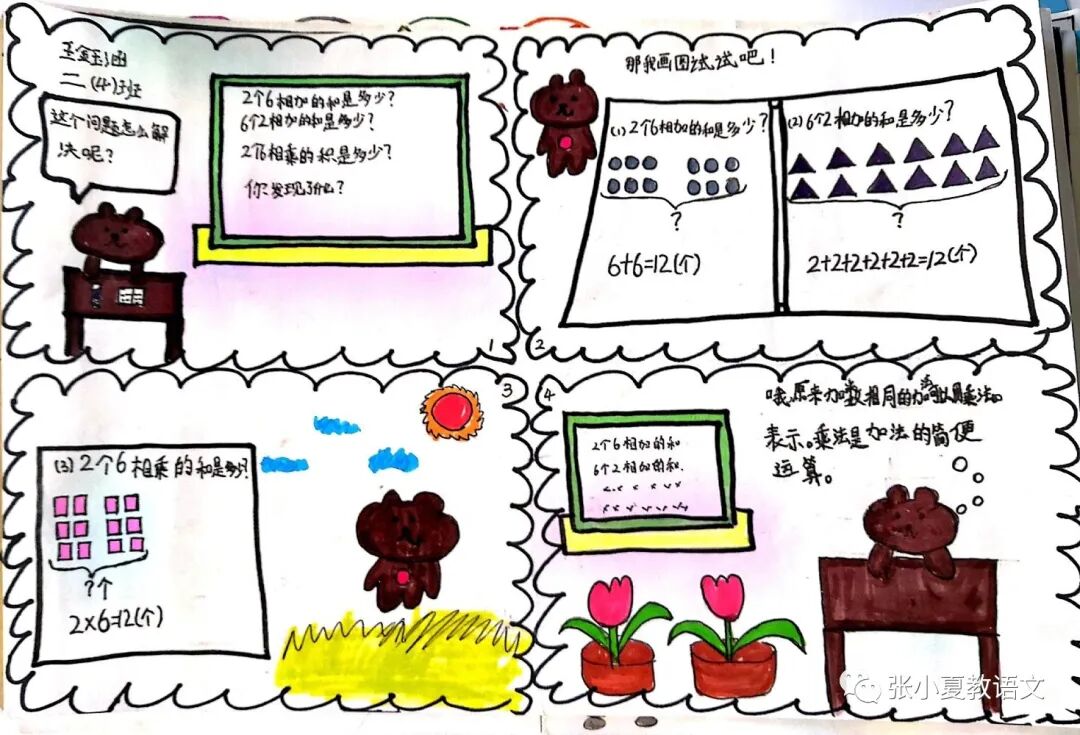 王金玉涵
二(4)班
这个问题怎么解
决呢?
2个6相加的和是多少?
6个2相加的和是多少?
2个6相乘的积是多少?
你发现了什么?
1
那我画图试试吧!
(1)2个6相加的和是多少?
?
6+6=12(个)
(2)6个2相加的和是多少?
?
2+2+2+2+2+2=12(个)
2
3
(3)2个6相乘的和是多少?
?个
2×6=12(个)
4
哦,原来加数相同的加法可以用乘法。
表示。乘法是加法的简便
运算。
2个6相加的和
6个2相加的和.
张小夏教语文